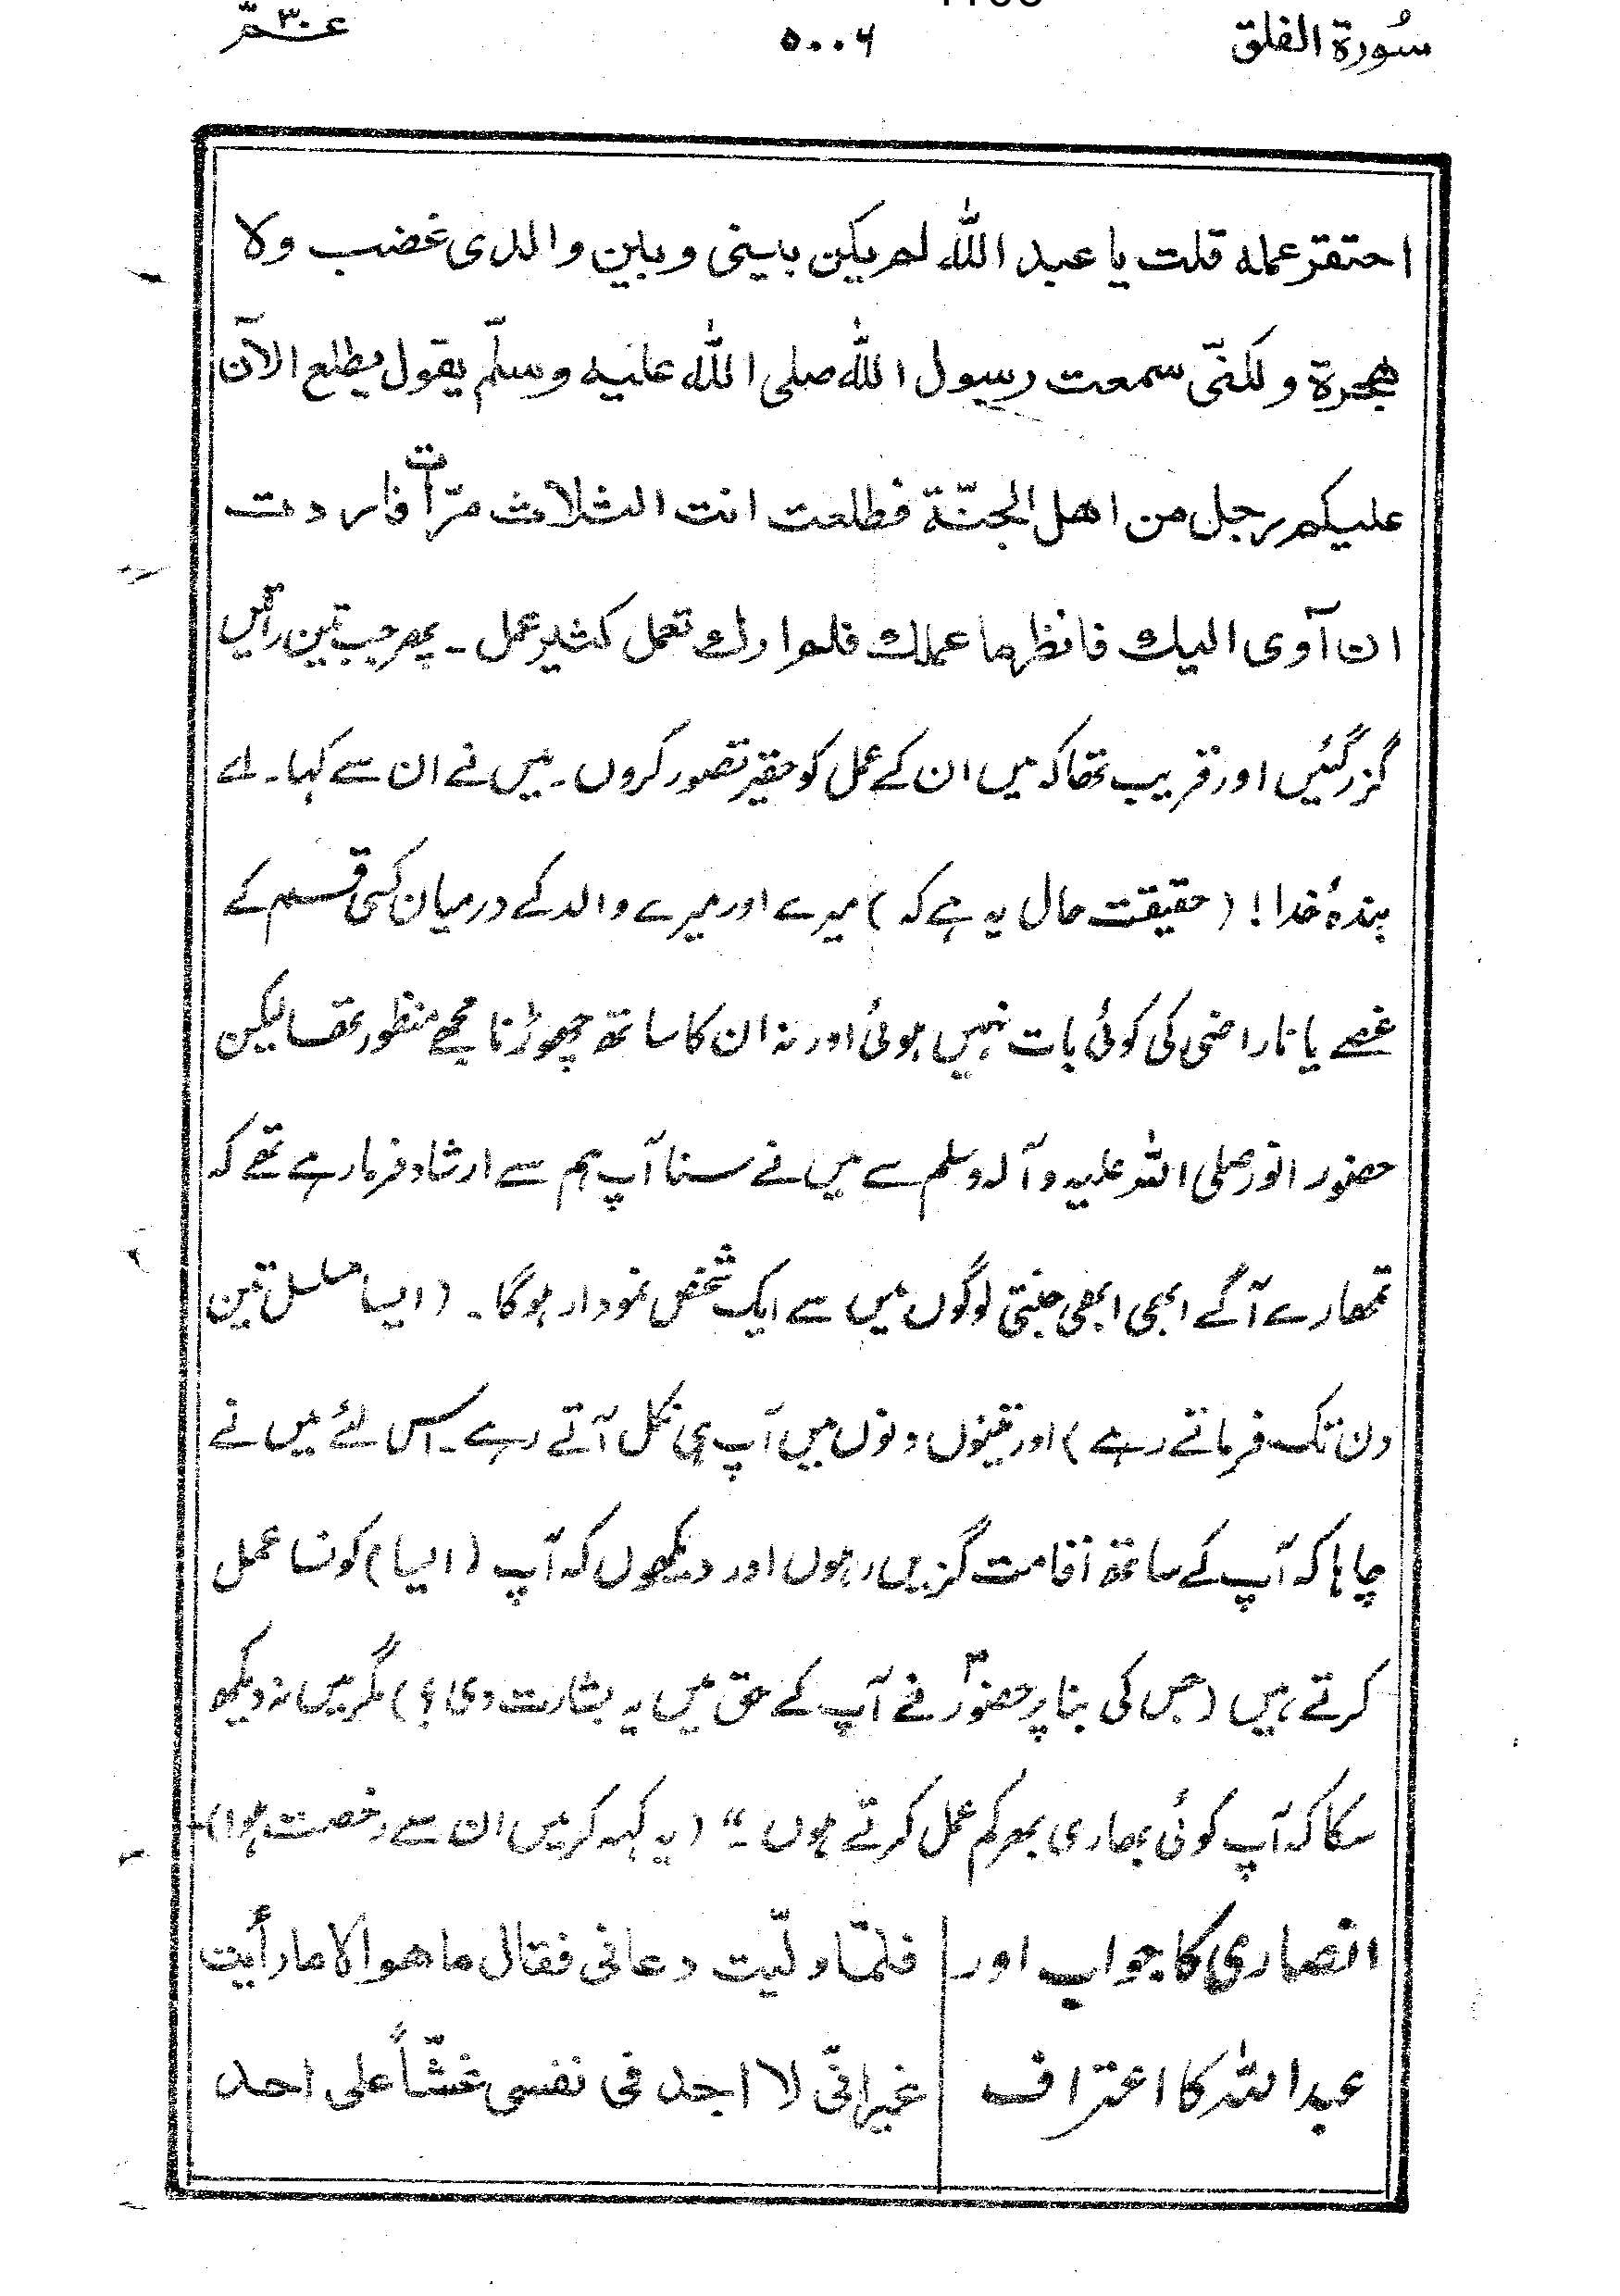 سُورة الفلق ۵۰۰۶ عـمّ ۳۰
احتقر عمله قلت يا عبد الله لم يكن بينى وبين والدى غضب ولا
هجرة ولكنّى سمعت رسول الله صلى الله عليه وسلّم يقول يطلع الآن
عليكم رجل من اهل الجنّة فطلعت انت الثلاث مرّات فاردت
ان آوى اليك فانظر ما عملك فلم ارك تعمل كثير عمل ۔ پھر جب تین راتیں
گزر گئیں اور قریب تھا کہ میں ان کے عمل کو حقیر تصور کروں۔ میں نے ان سے کہا۔ اے
بندۂ خدا! (حقیقت حال یہ ہے کہ) میرے اور میرے والد کے درمیان کسی قسم کے
غصے یا ناراضی کی کوئی بات نہیں ہوئی اور نہ ان کا ساتھ چھوڑنا مجھے منظور تھا لیکن
حضور انور صلی اللہ علیہ وآلہ وسلم سے میں نے سنا آپ ہم سے ارشاد فرما رہے تھے کہ
تمھارے آگے ابھی ابھی جنتی لوگوں میں سے ایک شخص نمودار ہوگا۔ (ایسا مسلسل تین
دن تک فرماتے رہے) اور تینوں دنوں میں آپ ہی نکل آتے رہے۔ اس لئے میں نے
چاہا کہ آپ کے ساتھ اقامت گزیں رہوں اور دیکھوں کہ آپ (ایسا) کونسا عمل
کرتے ہیں (جس کی بنا پر حضورؐ نے آپ کے حق میں یہ بشارت دی؟) مگر میں نہ دیکھ
سکا کہ آپ کوئی بھاری بھرکم عمل کرتے ہوں۔“ (یہ کہہ کر میں ان سے رخصت ہوا)
انصاری کا جواب اور فلمّا ولّيت دعانى فقال ما هو الا ما رأيت
عبداللہ کا اعتراف غير انّى لا اجد فى نفسى غشّاً على احد